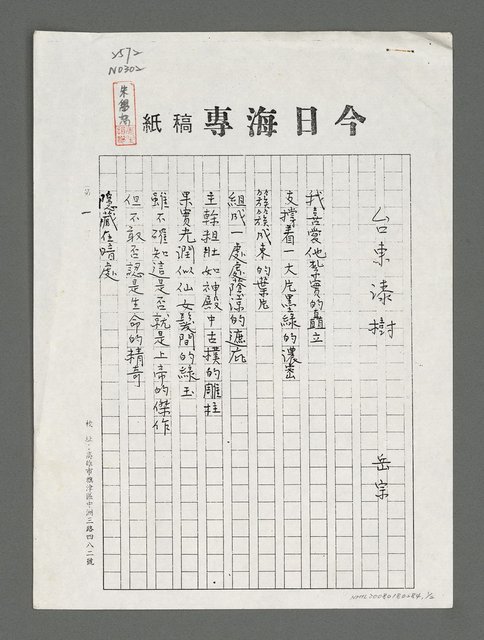 2572
N0302
朱學恕
今日海專稿紙
台東漆樹
岳宗
我喜愛他紮實的矗立
支撐着一大片墨綠的濃密
簇簇成束的葉片
組成一處處陰深的遮庇
主幹粗壯如神殿中古撲的雕柱
果實光潤似仙女鬢間的綠玉
雖不確知這是否就是上帝的傑作
但不敢否認是生命的精奇
隱藏在暗處
第一
校址:高雄市旗津區中洲三路四八二號